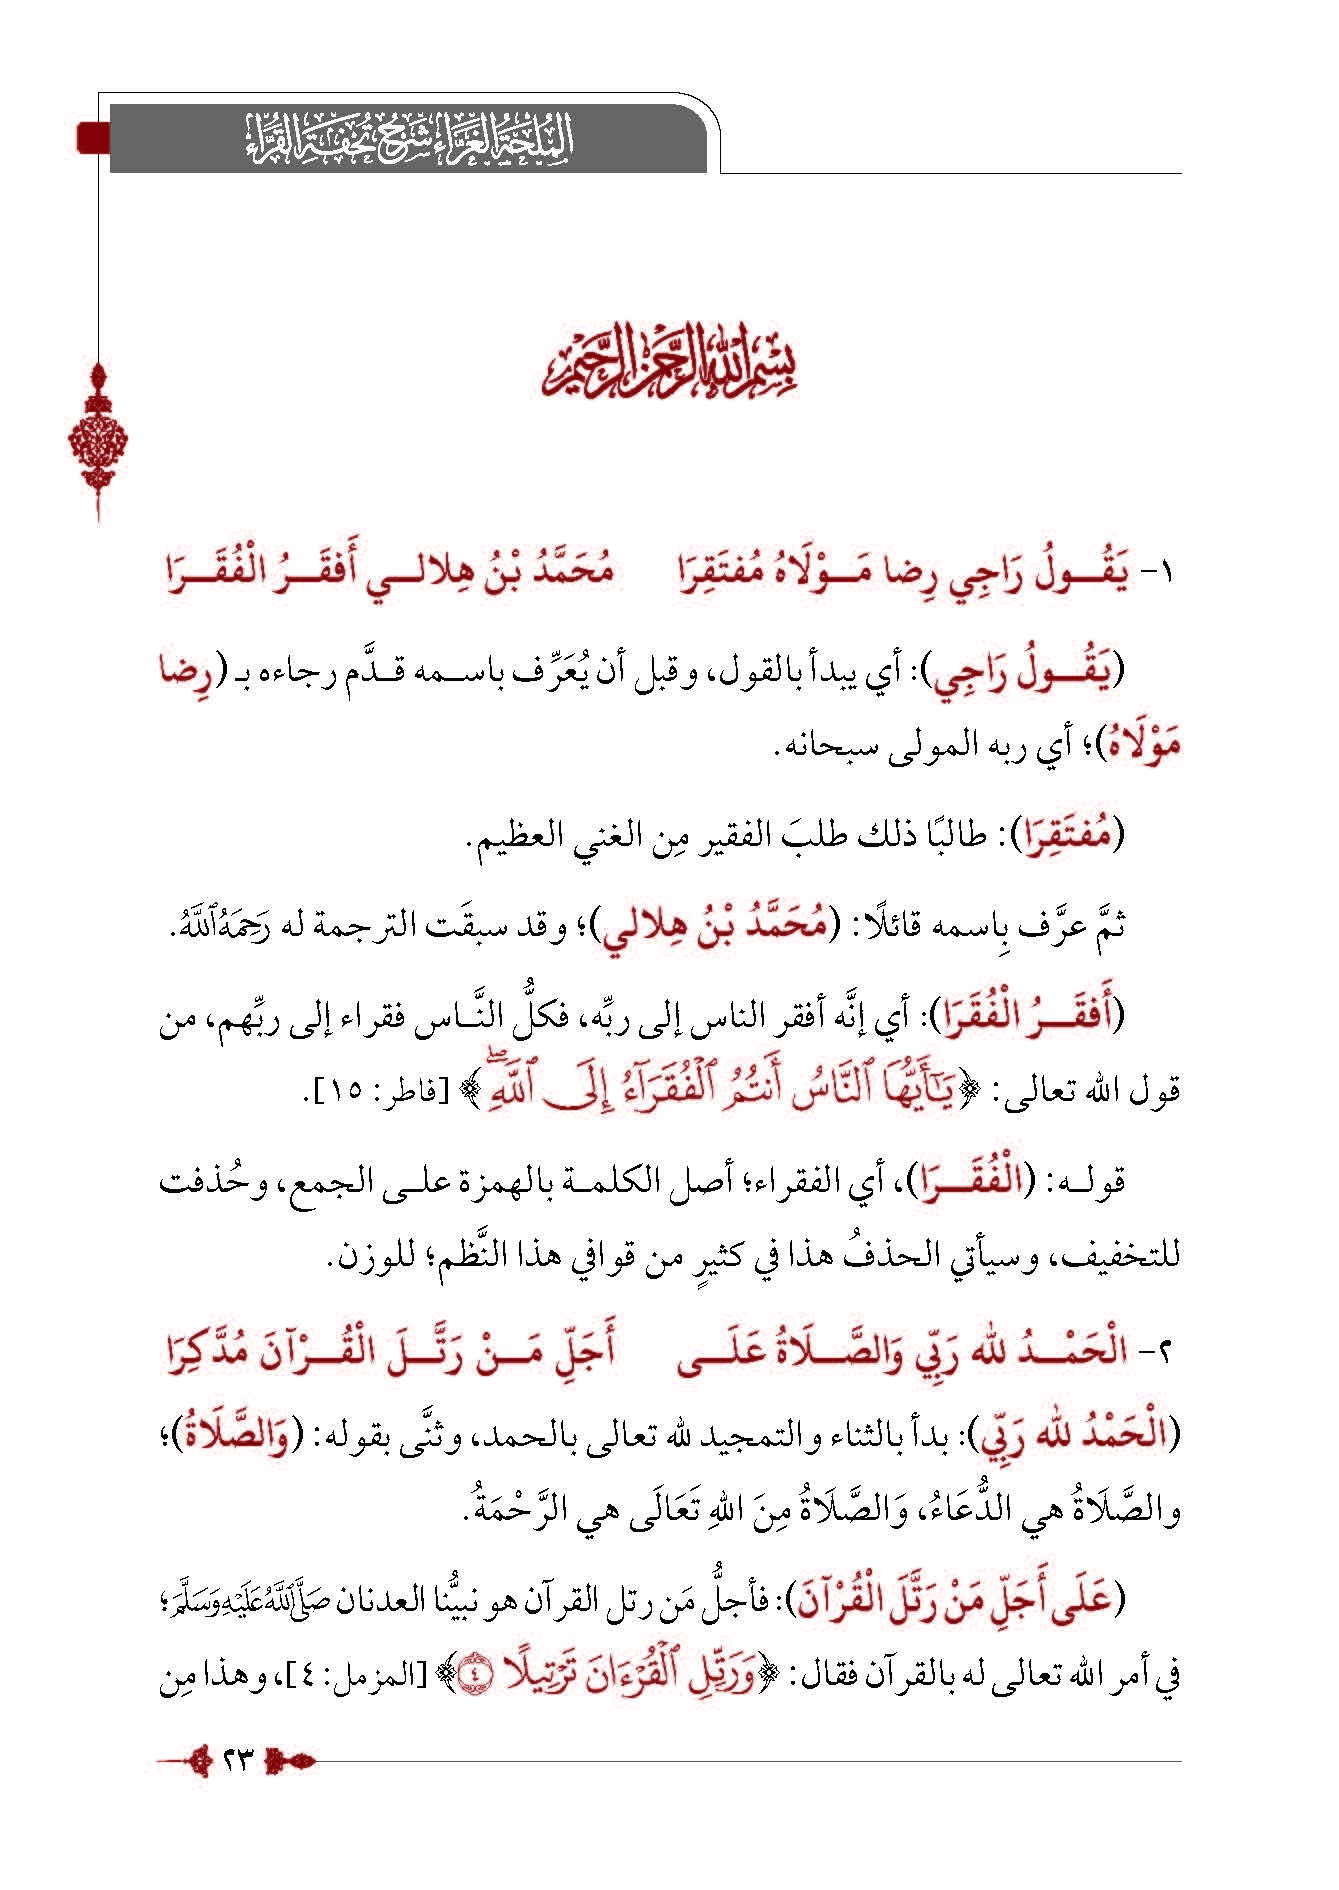 المُلْحَةُ الغَرَّاء شَرْحُ تُحْفَةِ القُرَّاء
بِسْمِ اللَّهِ الرَّحْمَٰنِ الرَّحِيمِ
١- يَقُــولُ رَاجِي رِضا مَــوْلَاهُ مُفتَقِرَا مُحَمَّدُ بْنُ هِلالــي أَفقَــرُ الْفُقَــرَا
(يَقُــولُ رَاجِي): أي يبدأ بالقول، وقبل أن يُعَرِّف باســمه قــدَّم رجاءه بـ (رِضا
مَوْلَاهُ)؛ أي ربه المولى سبحانه.
(مُفتَقِرَا): طالبًا ذلك طلبَ الفقير مِن الغني العظيم.
ثمَّ عرَّف بِاسمه قائلًا: (مُحَمَّدُ بْنُ هِلالي)؛ وقد سبقَت الترجمة له رَحِمَهُ اللَّهُ.
(أَفقَــرُ الْفُقَرَا): أي إنَّه أفقر الناس إلى ربِّه، فكلُّ النَّــاس فقراء إلى ربِّهم، من
قول الله تعالى: ﴿يَٰٓأَيُّهَا ٱلنَّاسُ أَنتُمُ ٱلْفُقَرَآءُ إِلَى ٱللَّهِۖ﴾ [فاطر: ١٥].
قولــه: (الْفُقَــرَا)، أي الفقراء؛ أصل الكلمــة بالهمزة علــى الجمع، وحُذفت
للتخفيف، وسيأتي الحذفُ هذا في كثيرٍ من قوافي هذا النَّظم؛ للوزن.
٢- الْحَمْــدُ لله رَبِّي وَالصَّــلَاةُ عَلَــى أَجَلِّ مَــنْ رَتَّــلَ الْقُــرْآنَ مُدَّكِرَا
(الْحَمْدُ لله رَبِّي): بدأ بالثناء والتمجيد لله تعالى بالحمد، وثنَّى بقوله: (وَالصَّلَاةُ)؛
والصَّلَاةُ هي الدُّعَاءُ، وَالصَّلَاةُ مِنَ اللهِ تَعَالَى هي الرَّحْمَةُ.
(عَلَى أَجَلِّ مَنْ رَتَّلَ الْقُرْآنَ): فأجلُّ مَن رتل القرآن هو نبيُّنا العدنان صَلَّى اللَّهُ عَلَيْهِ وَسَلَّمَ؛
في أمر الله تعالى له بالقرآن فقال: ﴿وَرَتِّلِ ٱلْقُرْءَانَ تَرْتِيلًا ٤﴾ [المزمل: ٤]، وهذا مِن
٢٣